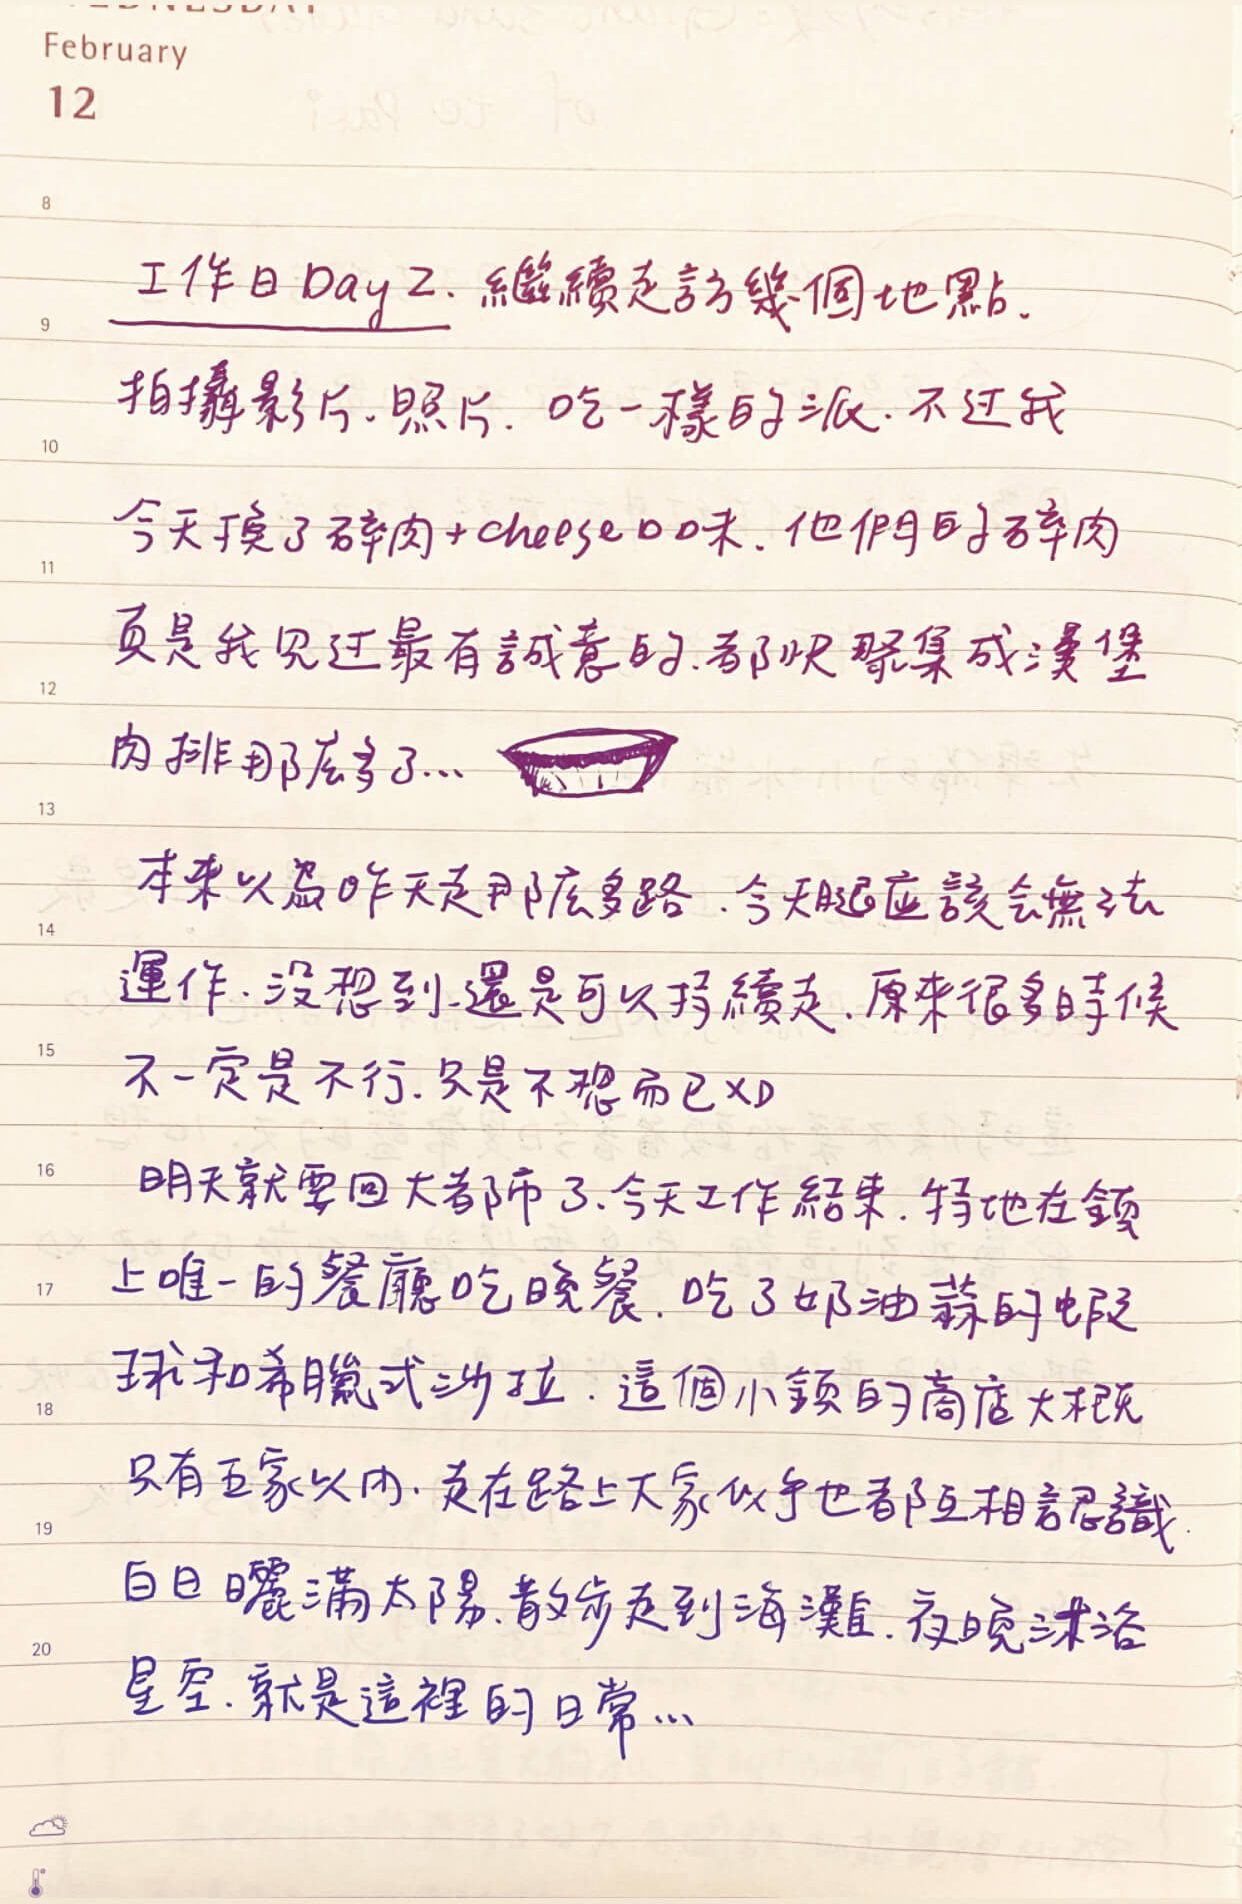 WEDNESDAY
February
12
8
工作日Day 2. 繼續走訪幾個地點.
9
拍攝影片.照片. 吃一樣的派.不过我
10
今天換了碎肉+cheese口味. 他們的碎肉
11
真是我見过最有誠意的.都快聚集成漢堡
12
肉排那広多了...
13
本來以為昨天走那広多路.今天腿應該会無法
14
運作.没想到.還是可以持續走.原來很多時候
15
不一定是不行.只是不想而已XD
16
明天就要回大都市了.今天工作結束.特地在鎮
17
上唯一的餐廳吃晚餐.吃了奶油蒜的蝦
球和希臘式沙拉.這個小鎮的商店大概
18
只有五家以內.走在路上大家似乎也都互相認識.
19
白日曬滿太陽.散步走到海灘.夜晚沐浴
20
星空.就是這裡的日常...